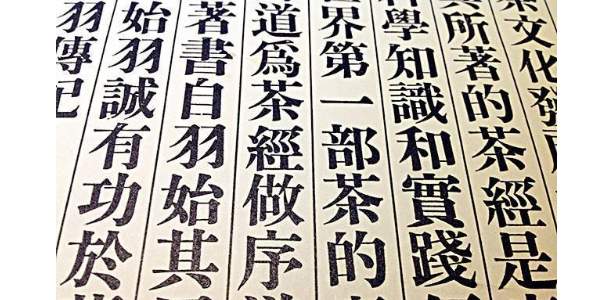 茶文化發
所著的茶經是
學知識和實踐
世界第一部茶的
道爲茶經做序
著書自羽始其
始羽誠有功於
羽傳記